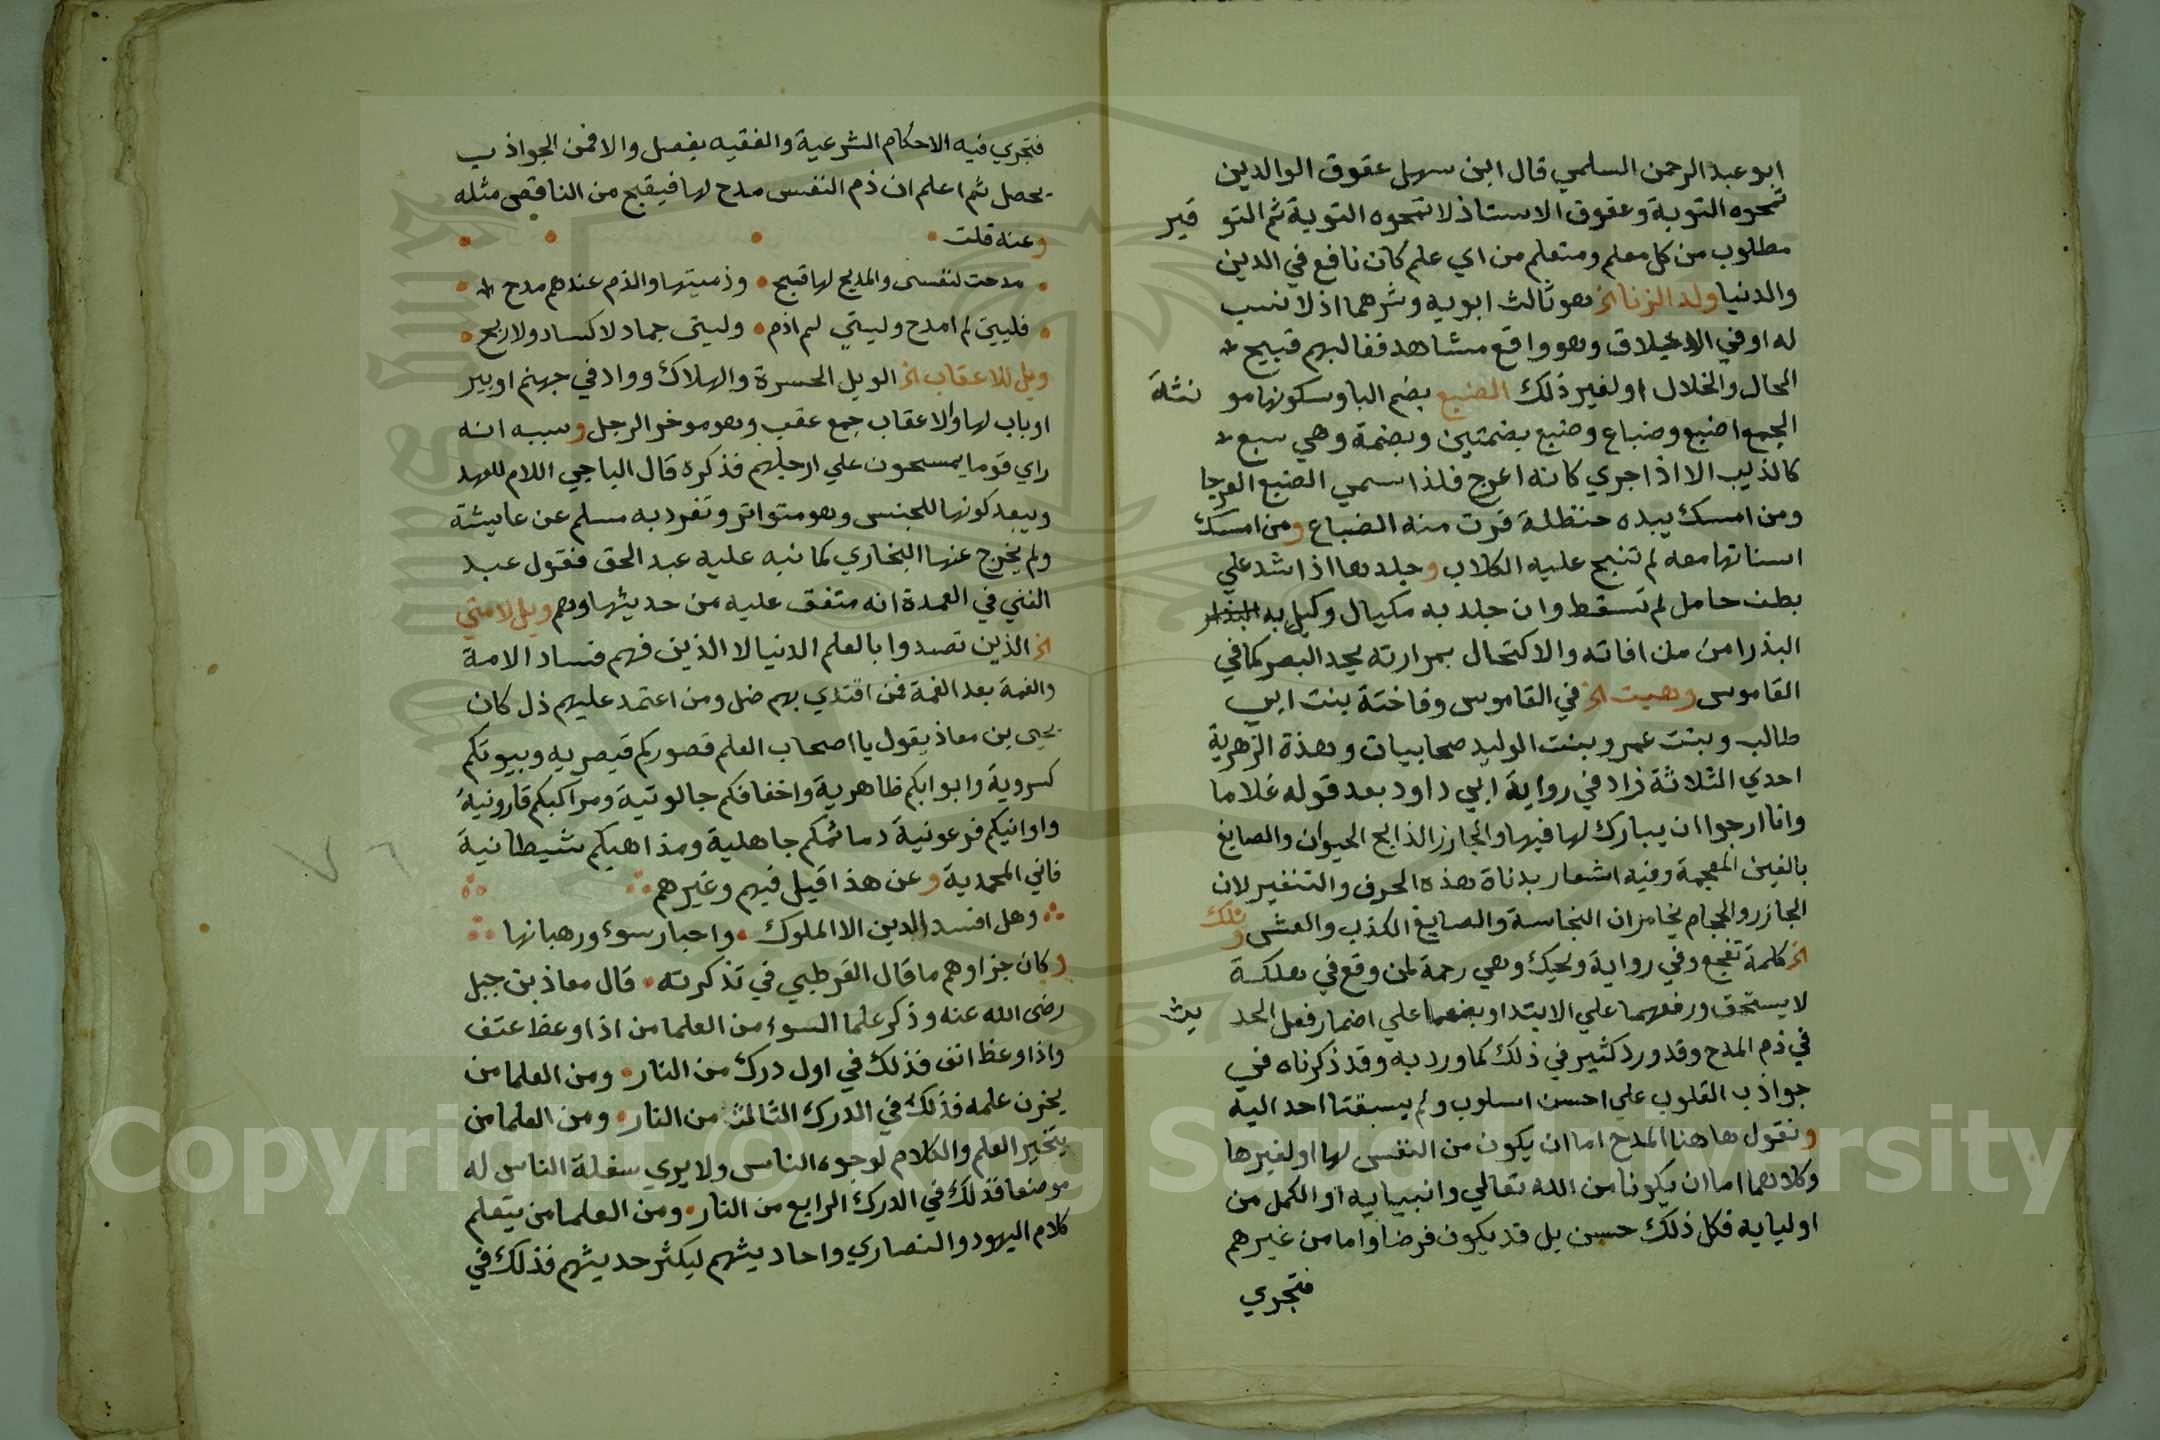 ابو عبد الرحمن السلمي قال ابن سهل عقوق الوالدين
تمحوه التوبة وعقوق الاستاذ لا تمحوه التوبة ثم التوقير
مطلوب من كل معلم ومتعلم من اي علم كان نافع في الدين
والدنيا ولد الزنا الخ هو ثالث ابويه وشرهما اذ لا نسب
له او في الاخلاق وهو واقع مشاهد فغالبهم قبيح
الحال والخلال او لغير ذلك الضبع بضم البا وسكونها مونثة
الجمع اضبع وضباع وضبع بضمتين وبضمة وهي سبع
كالذيب الا اذا جري كانه اعرج فلذا سمي الضبع العرجا
ومن امسك بيده حنظلة فرت منه الضباع ومن امسك
اسنانها معه لم تنبح عليه الكلاب وجلدها اذا شد علي
بطن حامل لم تسقط وان جلد به مكيال وكيل به
البذر امن من افاته والاكتحال بمرارته يحد البصر كما في
القاموس وهبت الخ في القاموس وفاختة بنت ابي
طالب وبنت عمرو وبنت الوليد صحابيات وهذة الزهرية
احدي الثلاثة زاد في رواية ابي داود بعد قوله غلاما
وانا ارجوا ان يبارك لها فيها والجازر الذابح الحيوان والصايغ
بالغين المعجمة وفيه اشعار بدناة هذه الحرف والتنفير لان
الجازر والحجام يخامران النجاسة والصايغ الكذب والغش ويلك
الخ كلمة تفجع وفي رواية ويحك وهي رحمة لمن وقع في هلكة
لا يستحق ورفعهما علي الابتدا وبضعما علي اضمار فعل الحديث
في ذم المدح وقد ورد كثير في ذلك كما ورد به وقد ذكرناه في
جواذب القلوب علي احسن اسلوب ولم يسبقنا احد اليه
ونقول هاهنا المدح اما ان يكون من النفس لها او لغيرها
وكلاهما اما ان يكونا من الله تعالي وانبيايه او الكمل من
اوليايه فكل ذلك حسن بل قد يكون فرضا واما من غيرهم
فتجري
فتجري فيه الاحكام الشرعية والفقيه يفصل والا فمن الجواذب
يحصل ثم اعلم ان ذم النفس مدح لها فيقبح من الناقص مثله
وعنه قلت
مدحت لنفسى والمديح لها قبيح وذميتها والذم عندهم مدح
فليتى لم امدح وليتي لم اذم وليتى جماد لا كساد ولا ربح
ويل للاعقاب الخ الويل الحسرة والهلاك وواد في جهنم او بير
او باب لها والاعقاب جمع عقب وهو موخر الرجل وسببه انه
راي قوما يمسحون علي ارجلهم فذكره قال الباجي اللام للعهد
ويبعد كونها للجنس وهو متواتر وتفرد به مسلم عن عايشة
ولم يخرج عنها البخاري كما نبه عليه عبد الحق فقول عبد
الغني في العمدة انه متفق عليه من حديثها وهم ويل لامتي
الخ الذين تصدوا بالعلم الدنيا لا الذين فهم فساد الامة
والغمة بعد الغمة فمن اقتدي بهم ضل ومن اعتمد عليهم ذل كان
يحيى بن معاذ يقول يا اصحاب العلم قصوركم قيصريه وبيوتكم
كسروية وابوابكم ظاهرية واخفافكم جالوتية ومراكبكم قارونية
واوانيكم فرعونية دمائمكم جاهلية ومذاهبكم شيطانية
فاني المحمدية وعن هذا قيل فيهم وغيرهم
وهل افسد الدين الا الملوك واحبار سوء ورهبانها
وكان جزاوهم ما قال القرطبي في تذكرته قال معاذ بن جبل
رضى الله عنه وذكر علما السوء من العلما من اذا وعظ عنف
واذا وعظ انف فذلك في اول درك من النار ومن العلما من
يخزن علمه فذلك في الدرك الثالث من النار ومن العلما من
يتخير العلم والكلام لوجوه الناس ولا يري سفلة الناس له
موضعا فذلك في الدرك الرابع من النار ومن العلما من يتعلم
كلام اليهود والنصاري واحاديثهم ليكثر حديثهم فذلك في
Copyright © King Saud University
1957